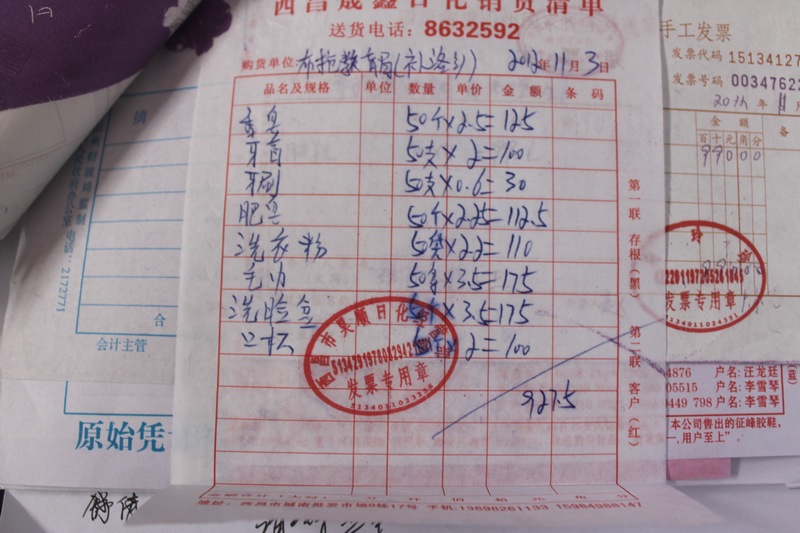 西昌晟鑫日化销货清单
送货电话：8632592
购货单位：布拖教育局(补洛乡) 2012年11月3日
品名及规格 单位 数量 单价 金额 条码
香皂 50个×2.5=125
牙膏 50支×2=100
牙刷 50支×0.6=30
肥皂 50个×2.25=112.5
洗衣粉 50袋×2.2=110
毛巾 50条×3.5=175
洗脸盆 ×3.5=175
口杯 ×2=100
927.5
第一联 存根(黑) 第二联 客户(红)
发票专用章
5134011023256
手机:13698261133 15984988147
摘
财政局监制
电话：2172771
合
会计主管
原始凭
手工发票
发票代码 15134127
发票号码 00347622
年 月
金额 备
百十元角分
99000
发票专用章
4876 户名:汪龙廷
05515 户名:李雪琴
0449 798 户名:李雪琴
"本公司售出的征峰胶鞋,
一,用户至上"
(蓝)